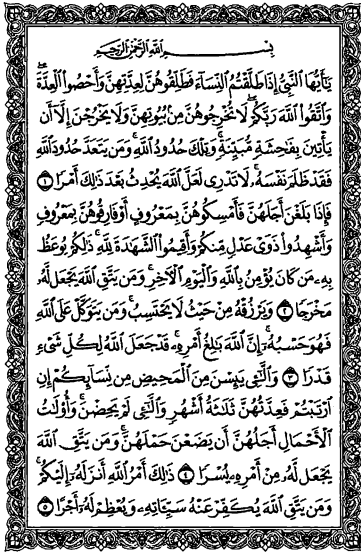 بِسْمِ اللَّهِ الرَّحْمَٰنِ الرَّحِيمِ
يَٰٓأَيُّهَا النَّبِيُّ إِذَا طَلَّقْتُمُ النِّسَآءَ فَطَلِّقُوهُنَّ لِعِدَّتِهِنَّ وَأَحْصُوا۟ الْعِدَّةَ ۖ
وَاتَّقُوا۟ اللَّهَ رَبَّكُمْ ۖ لَا تُخْرِجُوهُنَّ مِنۢ بُيُوتِهِنَّ وَلَا يَخْرُجْنَ إِلَّآ أَن
يَأْتِينَ بِفَٰحِشَةٍ مُّبَيِّنَةٍ ۚ وَتِلْكَ حُدُودُ اللَّهِ ۚ وَمَن يَتَعَدَّ حُدُودَ اللَّهِ
فَقَدْ ظَلَمَ نَفْسَهُۥ ۚ لَا تَدْرِى لَعَلَّ اللَّهَ يُحْدِثُ بَعْدَ ذَٰلِكَ أَمْرًا ١
فَإِذَا بَلَغْنَ أَجَلَهُنَّ فَأَمْسِكُوهُنَّ بِمَعْرُوفٍ أَوْ فَارِقُوهُنَّ بِمَعْرُوفٍ
وَأَشْهِدُوا۟ ذَوَىْ عَدْلٍ مِّنكُمْ وَأَقِيمُوا۟ الشَّهَٰدَةَ لِلَّهِ ۚ ذَٰلِكُمْ يُوعَظُ
بِهِۦ مَن كَانَ يُؤْمِنُ بِاللَّهِ وَالْيَوْمِ الْءَاخِرِ ۚ وَمَن يَتَّقِ اللَّهَ يَجْعَل لَّهُۥ
مَخْرَجًا ٢ وَيَرْزُقْهُ مِنْ حَيْثُ لَا يَحْتَسِبُ ۚ وَمَن يَتَوَكَّلْ عَلَى اللَّهِ
فَهُوَ حَسْبُهُۥٓ ۚ إِنَّ اللَّهَ بَٰلِغُ أَمْرِهِۦ ۚ قَدْ جَعَلَ اللَّهُ لِكُلِّ شَىْءٍ
قَدْرًا ٣ وَالَّٰٓـِٔى يَئِسْنَ مِنَ الْمَحِيضِ مِن نِّسَآئِكُمْ إِنِ
ارْتَبْتُمْ فَعِدَّتُهُنَّ ثَلَٰثَةُ أَشْهُرٍ وَالَّٰٓـِٔى لَمْ يَحِضْنَ ۚ وَأُو۟لَٰتُ
الْأَحْمَالِ أَجَلُهُنَّ أَن يَضَعْنَ حَمْلَهُنَّ ۚ وَمَن يَتَّقِ اللَّهَ
يَجْعَل لَّهُۥ مِنْ أَمْرِهِۦ يُسْرًا ٤ ذَٰلِكَ أَمْرُ اللَّهِ أَنزَلَهُۥٓ إِلَيْكُمْ ۚ
وَمَن يَتَّقِ اللَّهَ يُكَفِّرْ عَنْهُ سَيِّـَٔاتِهِۦ وَيُعْظِمْ لَهُۥٓ أَجْرًا ٥